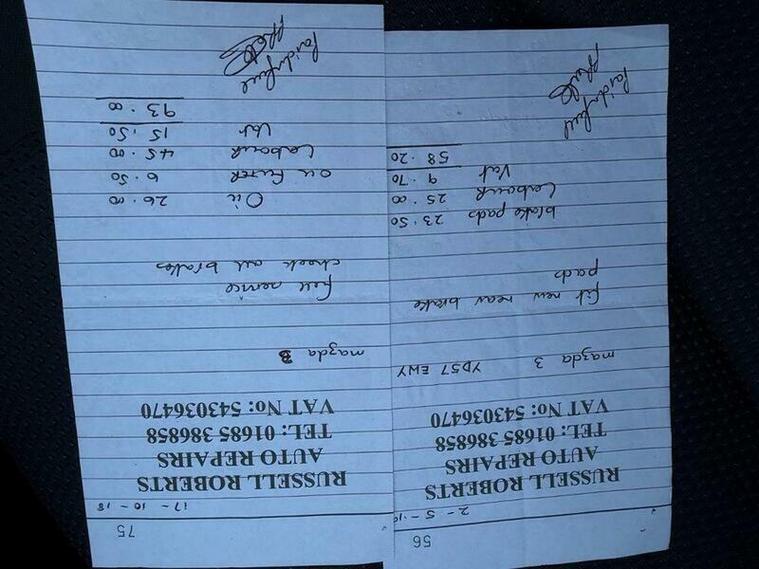 75
17 - 10 - 18
RUSSELL ROBERTS
AUTO REPAIRS
TEL: 01685 386858
VAT No: 543036470
mazda 3
full service
check all brakes
Oil 26.00
Oil FilTER 6.50
Labour 45.00
Vat 15.50
93.00
Paid in full
56
2 - 5 - 19
RUSSELL ROBERTS
AUTO REPAIRS
TEL: 01685 386858
VAT No: 543036470
mazda 3 YD57 EWY
fit new rear brake
pads
brake pads 23.50
Labour 25.00
Vat 9.70
58.20
Paid in full